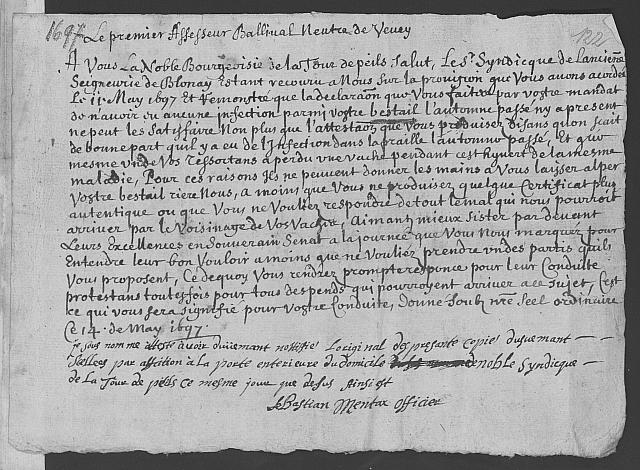 1697
122
Le premier Assesseur Ballival Neutre de Vevey
A Vous La Noble Bourgeoisie de la Tour de peils Salut, Le Sr. Syndicque de Lancienne
Seigneurie de Blonay Estant recouru a Nous Sur la provision que Vous avons accordee
Le 11e May 1697 Et Remonstré que la declaraon que Vous faites par vostre mandat
de n'avoir eu aucune infection parmi vostre bestail l'automne passe ny a present
ne peut les Satisfaire Non plus que l'attestaon que Vous produisez disans qu'on scait
de bonne part qu'il y a eu de l'Infection dans la praille l'automne passe, Et que
mesme un de Vos Ressortans a perdu une Vache pendant cest hyver de la mesme
maladie, Pour ces raisons Ils ne peuvent donner les mains a Vous laisser alper
Vostre bestail riere Nous, a moins que Vous ne produisez quelque Certificat plus
autentique ou que Vous ne Vouliez respondre de tout le mal qui nous pourroit
arriver par le Voisinage de Vos Vaches, Aimants mieux Sister par devant
Leurs Excellences en Souverain Senat a la journée que Vous Nous marquez pour
Entendre leur bon Vouloir a moins que ne Vouliez prendre un des partis qu'ils
Vous proposent, Ce dequoy Vous rendrez prompte responce pour leur Conduite
protestans toutesfois pour tous despends qui pourroyent arriver a ce Sujet, C'est
ce qui vous sera signifié pour Vostre Conduite, donne Soubz nre Seel ordinaire
Ce 14e de May 1697
Je sous nommé atteste avoir duement nottifié L'original des presante copie duement
seellees par affiction à la porte exterieure du domicile de noble Syndicque
de La Tour de peils ce mesme jour que desus Ainsi est
Sebastian Mentax Officier